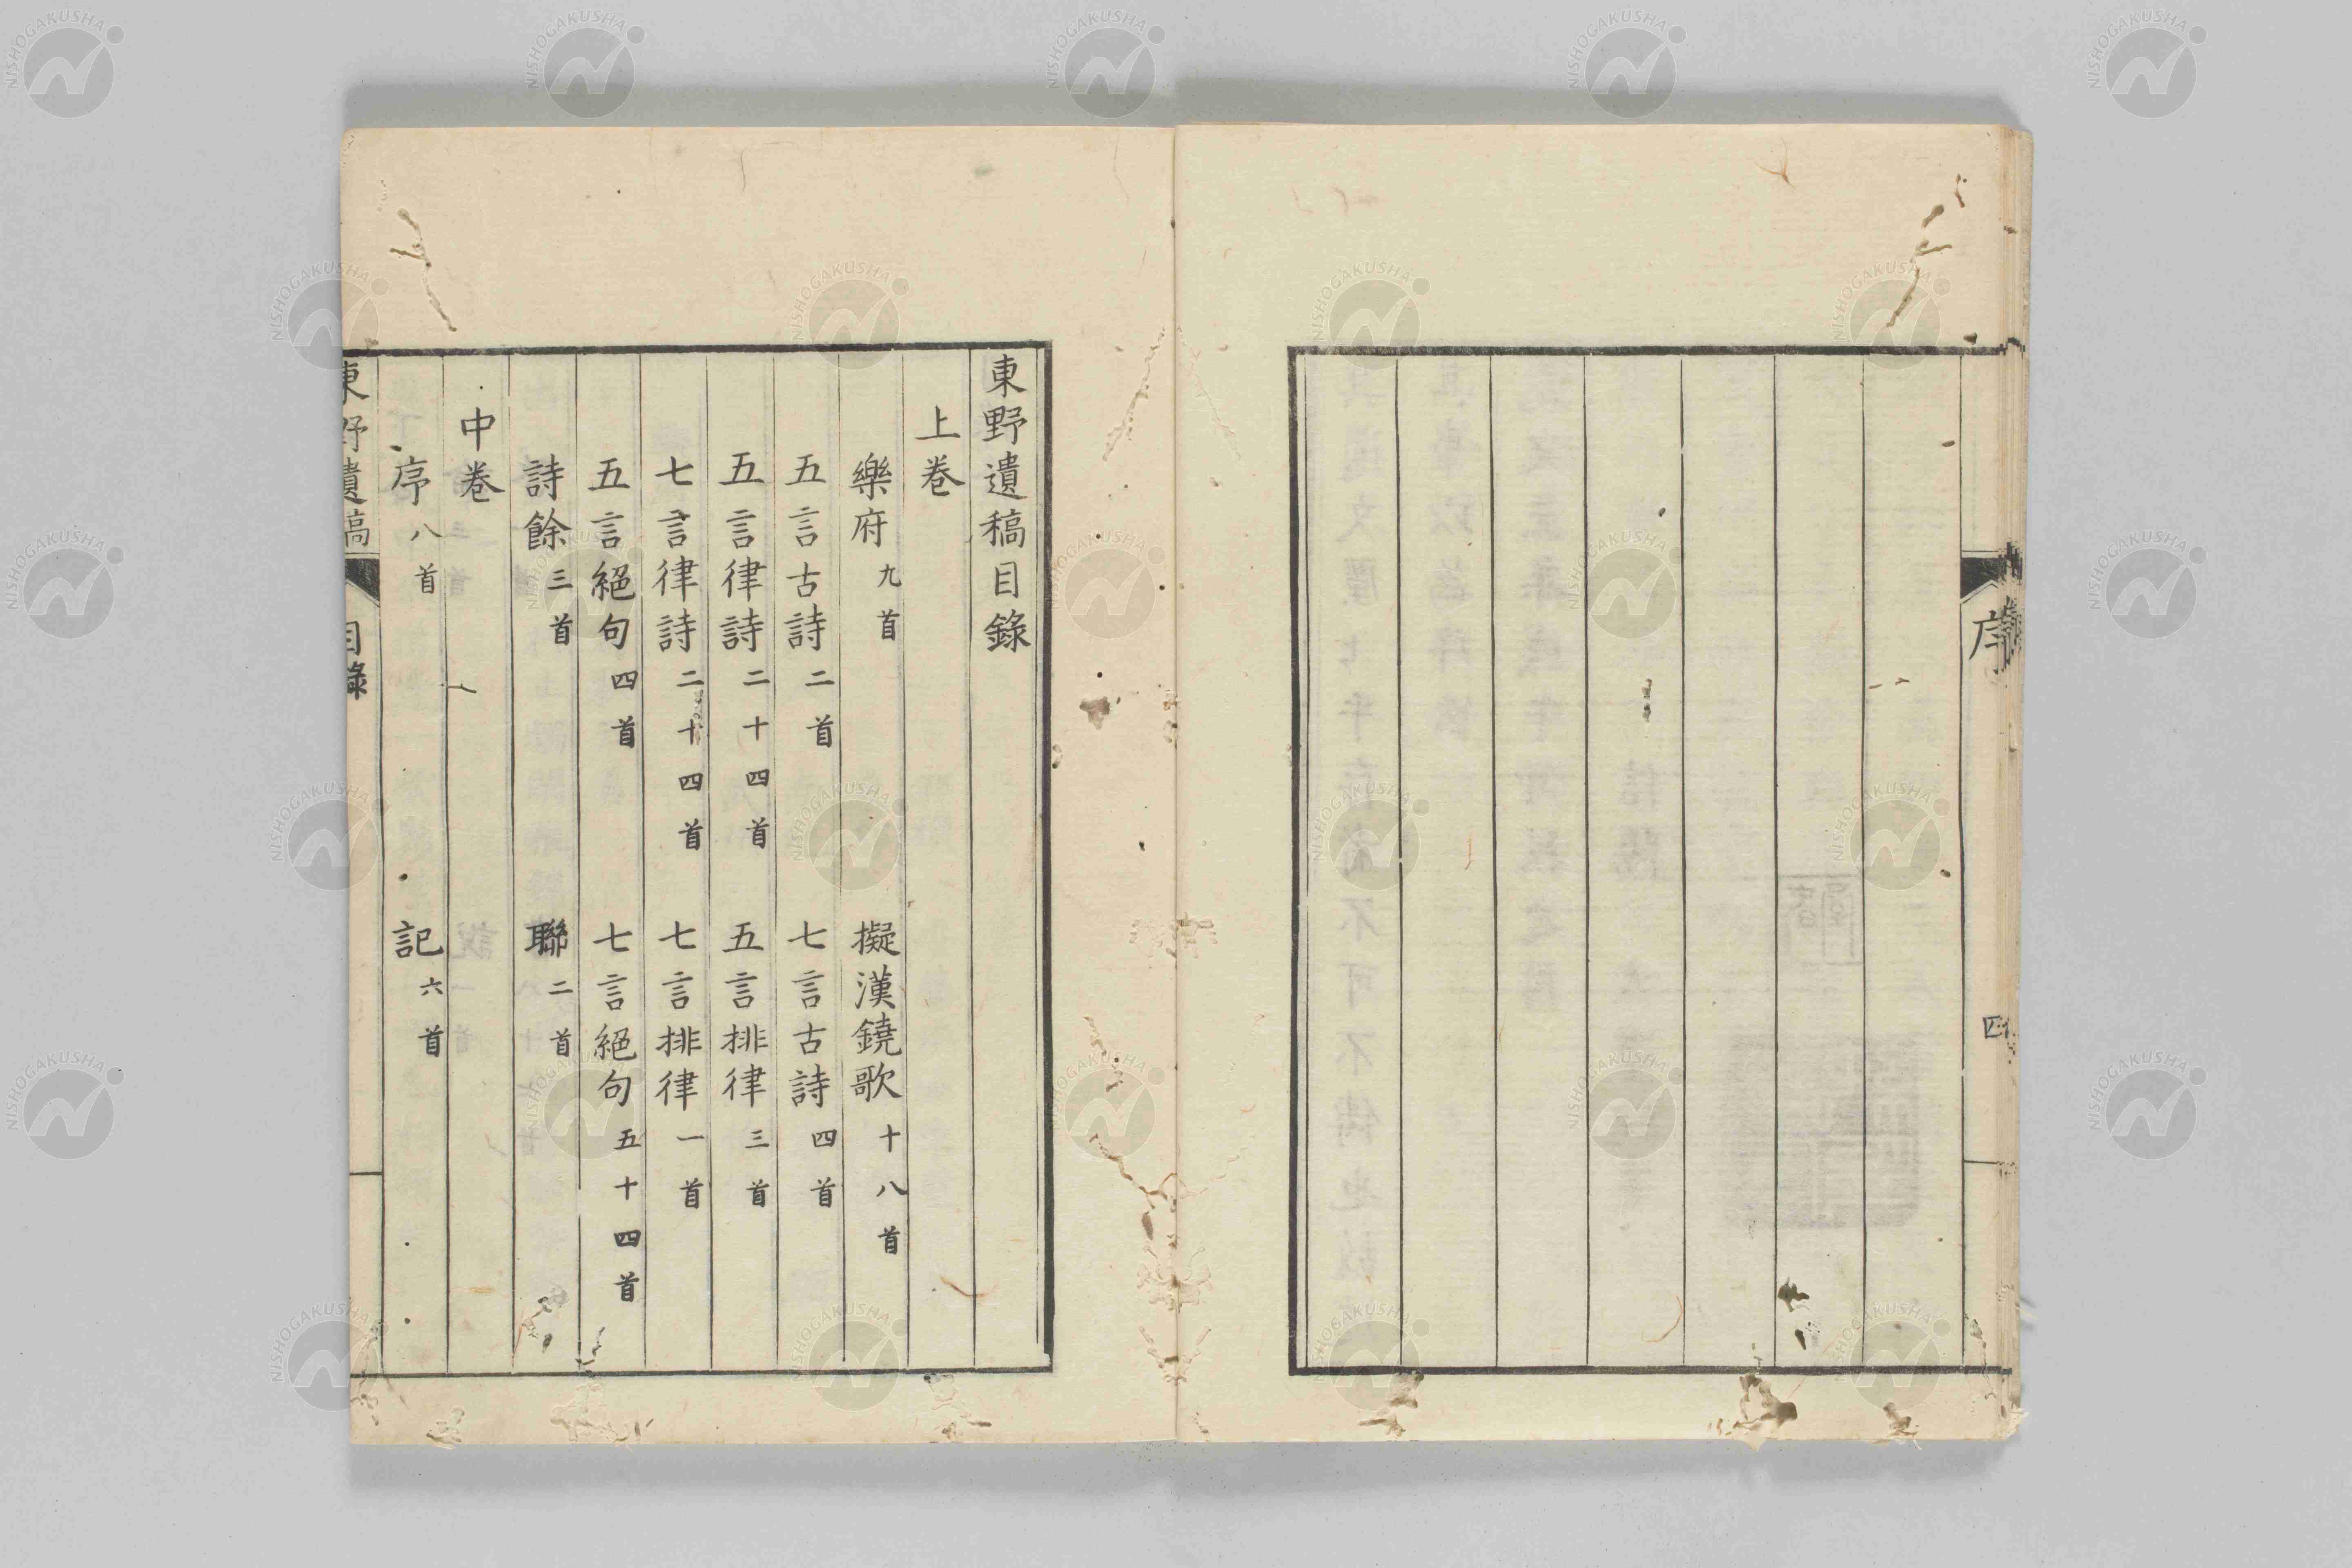 序
四
東野遺稿目錄
上卷
樂府九首 擬漢鐃歌十八首
五言古詩二首 七言古詩四首
五言律詩二十四首 五言排律三首
七言律詩二十四首 七言排律一首
五言絕句四首 七言絕句五十四首
詩餘三首 聯二首
中卷
序八首 記六首
東野遺稿 目錄
NISHOGAKUSHA